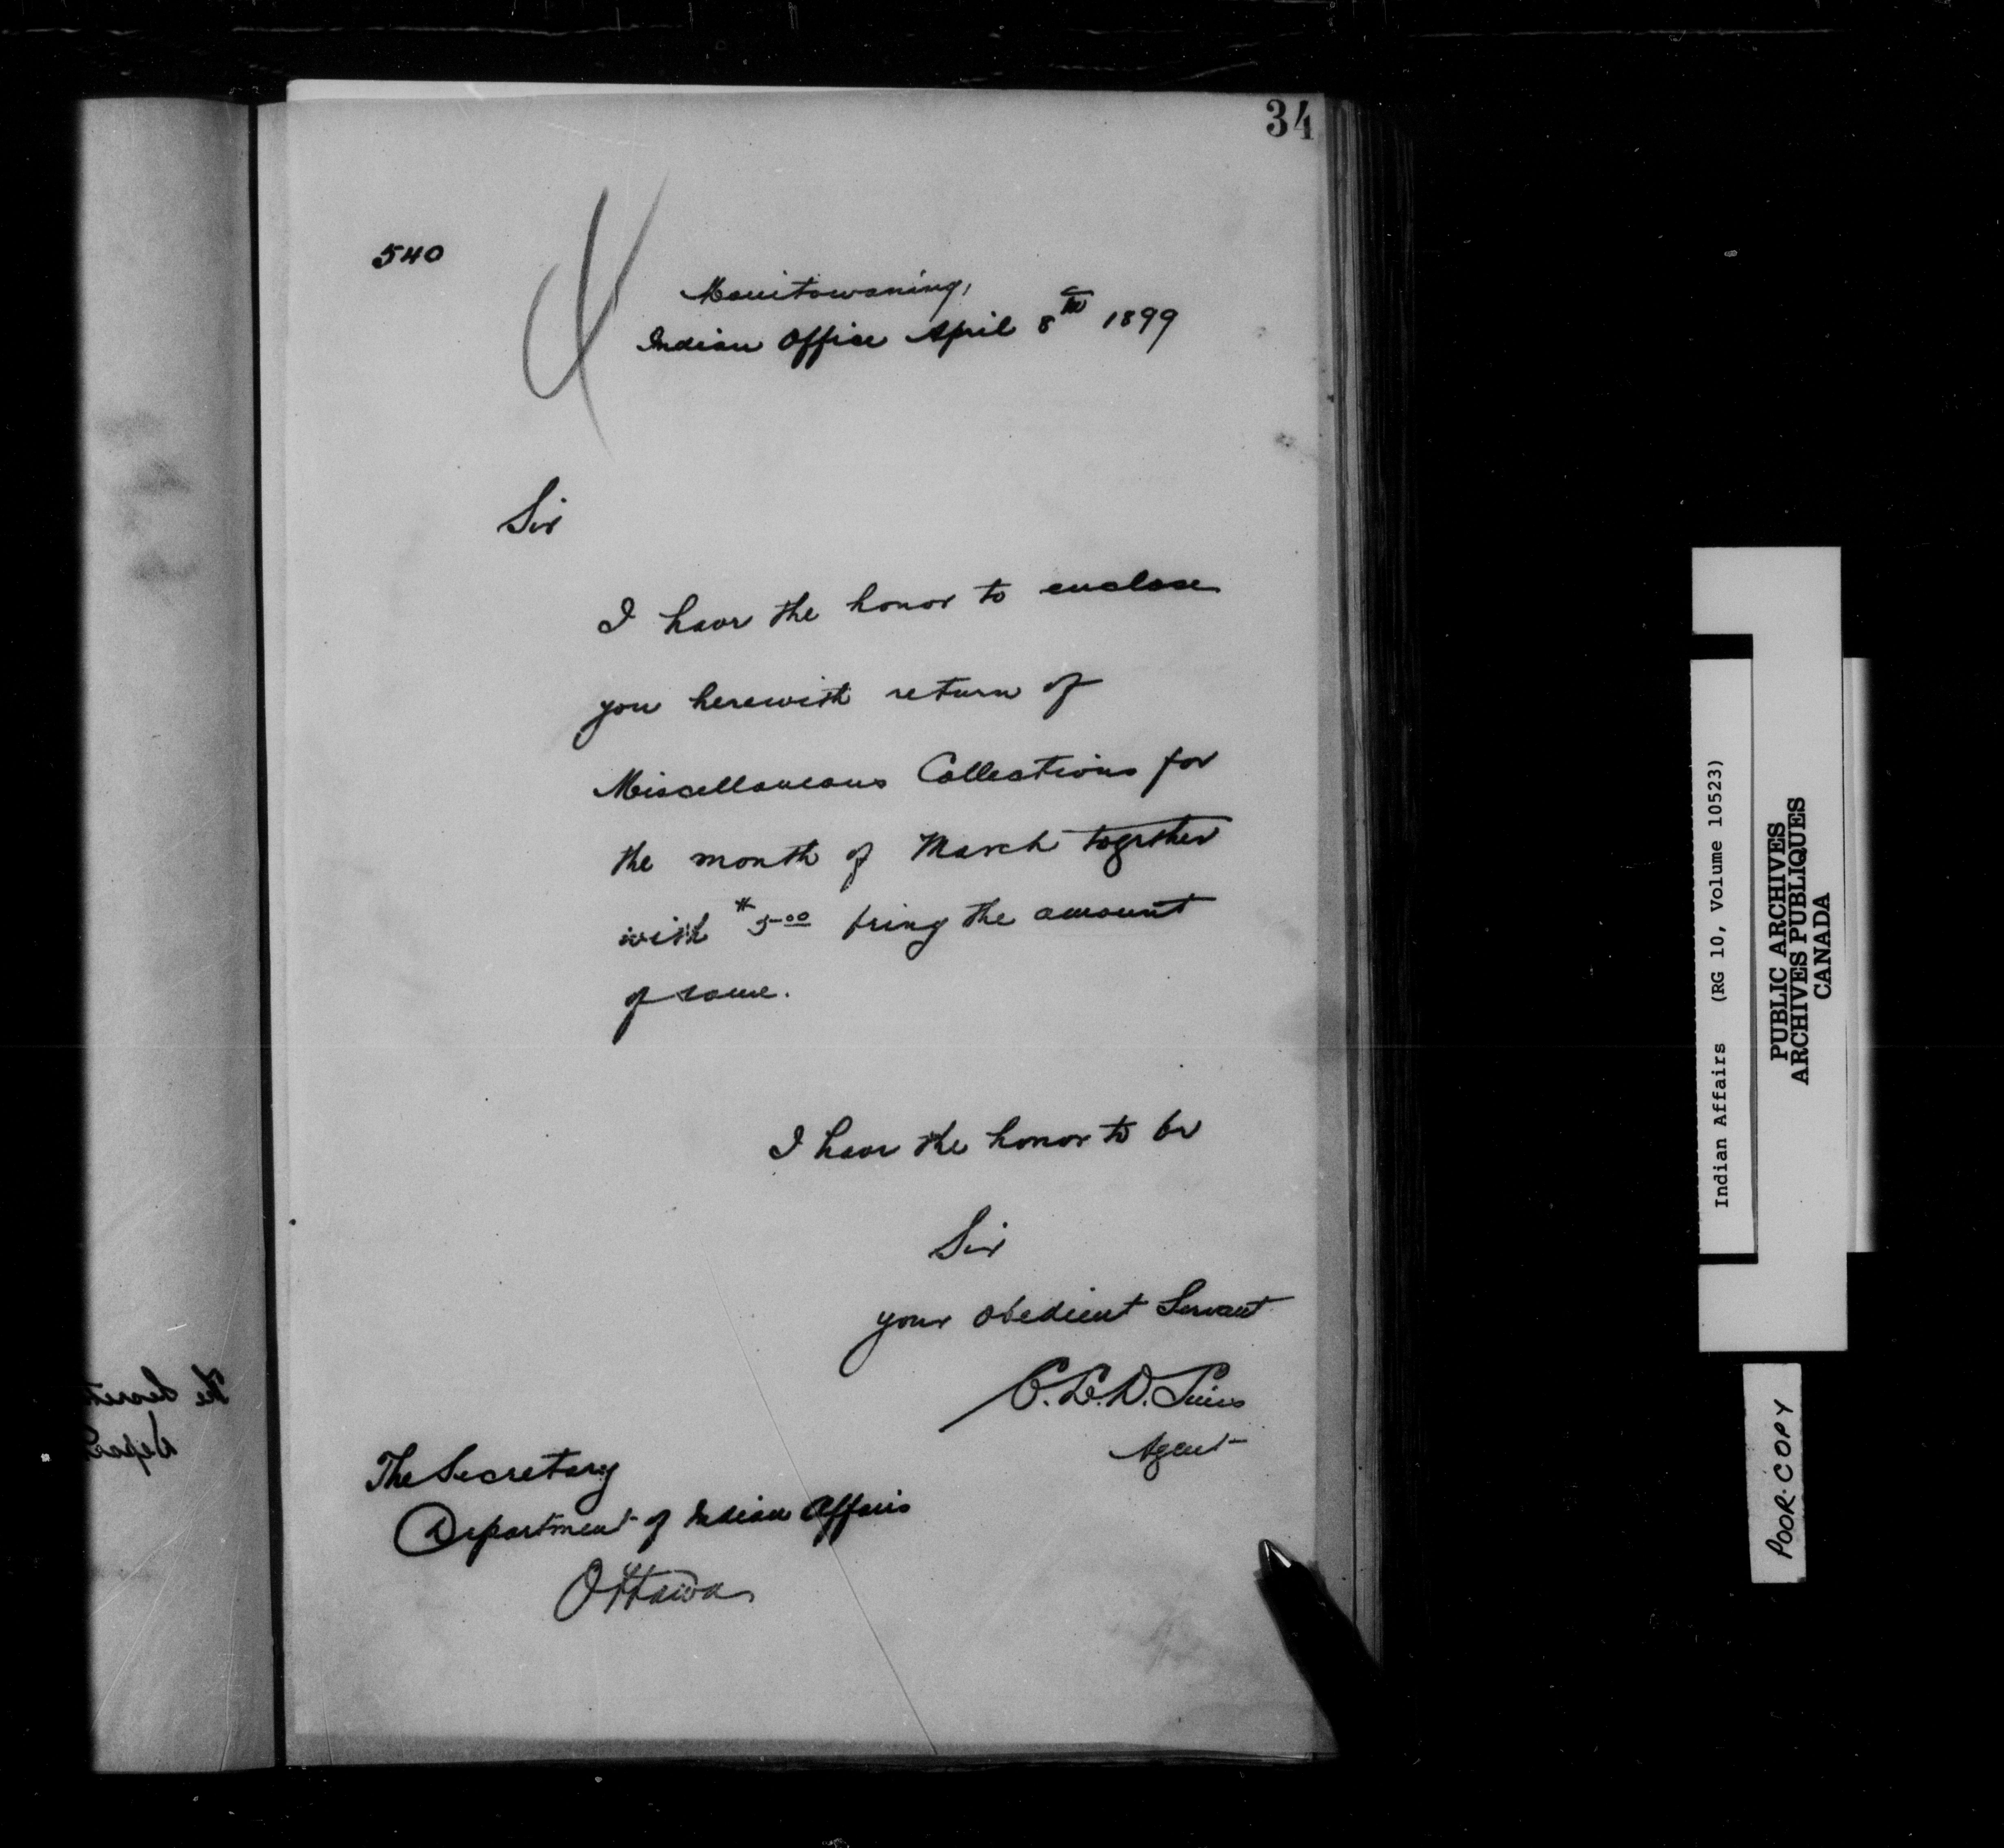 34
540
Manitowaning,
Indian Office April 8th 1899
Sir
I have the honor to enclose
you herewith return of
Miscellaneous Collections for
the month of March together
with $5.00 being the amount
of same.
I have the honor to be
Sir
your obedient Servant
C. L. D. Sims
Agent
The Secretary
Department of Indian Affairs
Ottawa
Indian Affairs (RG 10, Volume 10523)
PUBLIC ARCHIVES
ARCHIVES PUBLIQUES
CANADA
POOR COPY